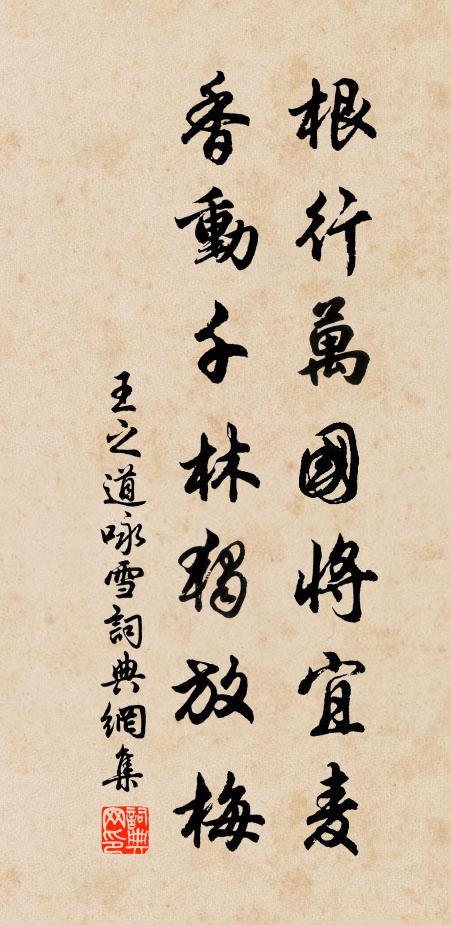 根行萬國將宜麦
香動千林獨放梅
王之道咏雪詞典網集
詞典网印